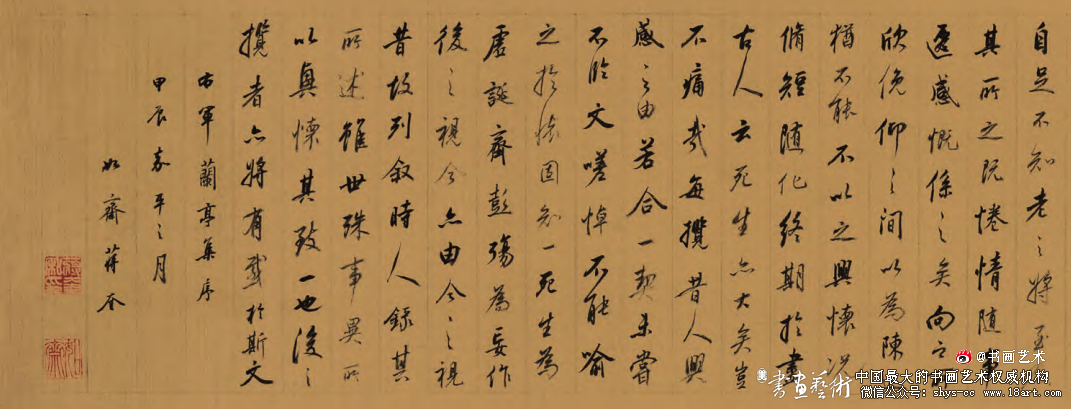 自足不知老之將至
其所之既惓情随事
遷感慨係之矣向之
欣俛仰之間以為陳
猶不能不以之興懷况
脩短随化終期於盡
古人云死生亦大矣豈
不痛哉每攬昔人興
感之由若合一契未嘗
不臨文嗟悼不能喻
之於懷固知一死生為
虛誕齊彭殤為妄作
後之視今亦由今之視
昔故列叙時人錄其
所述雖世殊事異所
以興懷其致一也後之
攬者亦將有感於斯文
右軍蘭亭集序
甲辰嘉平之月
如齋蔣
@书画艺术
書畫藝術
中国最大的书画艺术权威机构
微信公众号：shys-cc www.18art.com